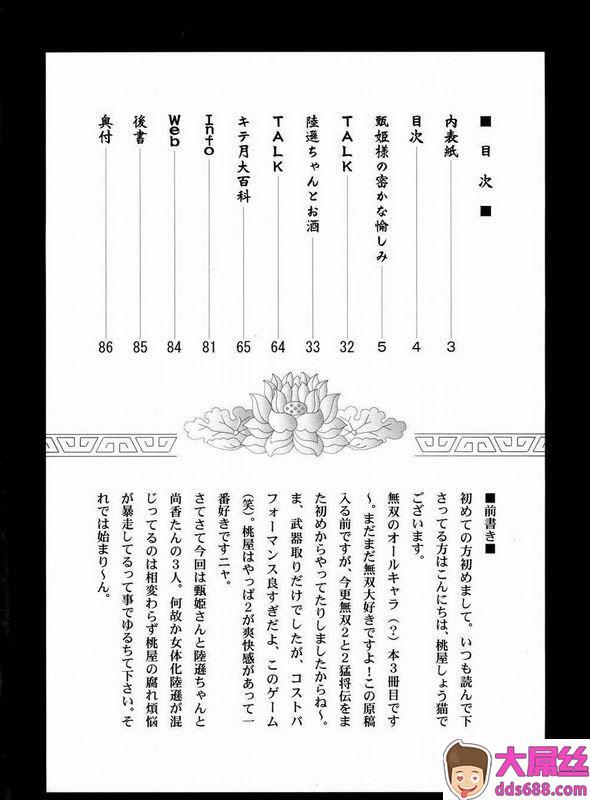 ■ 目 次 ■
内表紙 3
目次 4
甄姫様の密かな愉しみ 5
TALK 32
陸遜ちゃんとお酒 33
TALK 64
キテ月大百科 65
Info 81
Web 84
後書 85
奥付 86
■前書き■
初めての方初めまして。いつも読んで下
さってる方はこんにちは、桃屋しょう猫で
ございます。
無双のオールキャラ(?)本3冊目です
〜。まだまだ無双大好きですよ!この原稿
入る前ですが、今更無双2と2猛将伝をま
た初めからやってたりしましたからね〜。
ま、武器取りだけでしたが、コストパ
フォーマンス良すぎだよ、このゲーム
(笑)。桃屋はやっぱ2が爽快感があって一
番好きですニャ。
さてさて今回は甄姫さんと陸遜ちゃんと
尚香たんの3人。何故か女体化陸遜が混
じってるのは相変わらず桃屋の腐れ煩悩
が暴走してるって事でゆるちて下さい。そ
れでは始まり〜ん。
大屌丝
dds688.com